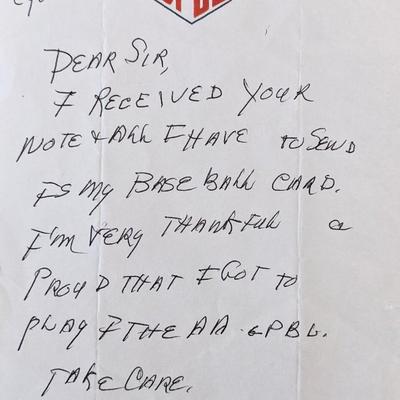 DEAR SIR,
I RECEIVED YOUR
NOTE & ALL I HAVE TO SEND
IS MY BASEBALL CARD.
I'M VERY THANKFUL &
PROUD THAT I GOT TO
PLAY I THE AA.GPBL.
TAKE CARE.